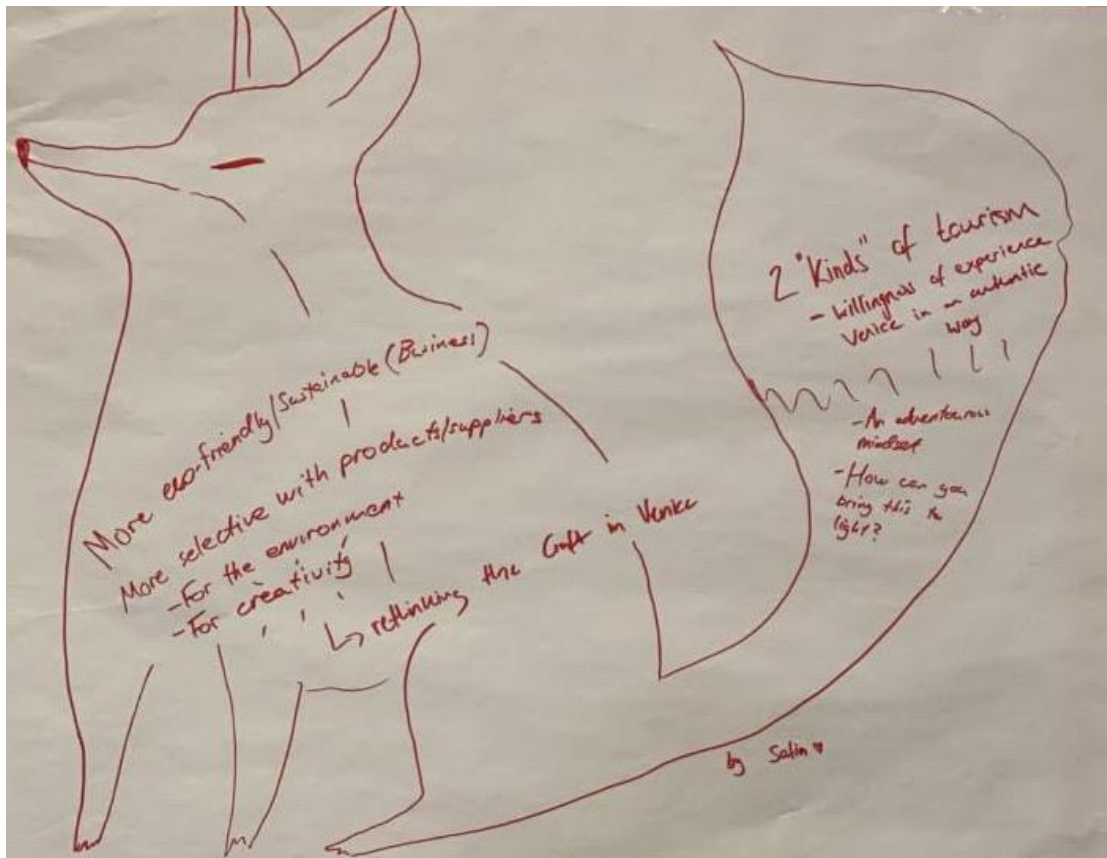 More eco-friendly/Sustainable (Business)
More selective with products/suppliers
-For the environment
-For creativity
↳ rethinking the Craft in Venice
2 "Kinds" of tourism
- willingness of experience
Venice in an authentic
way
-An adventourous
mindset
-How can you
bring this to
light?
by Salin ♥